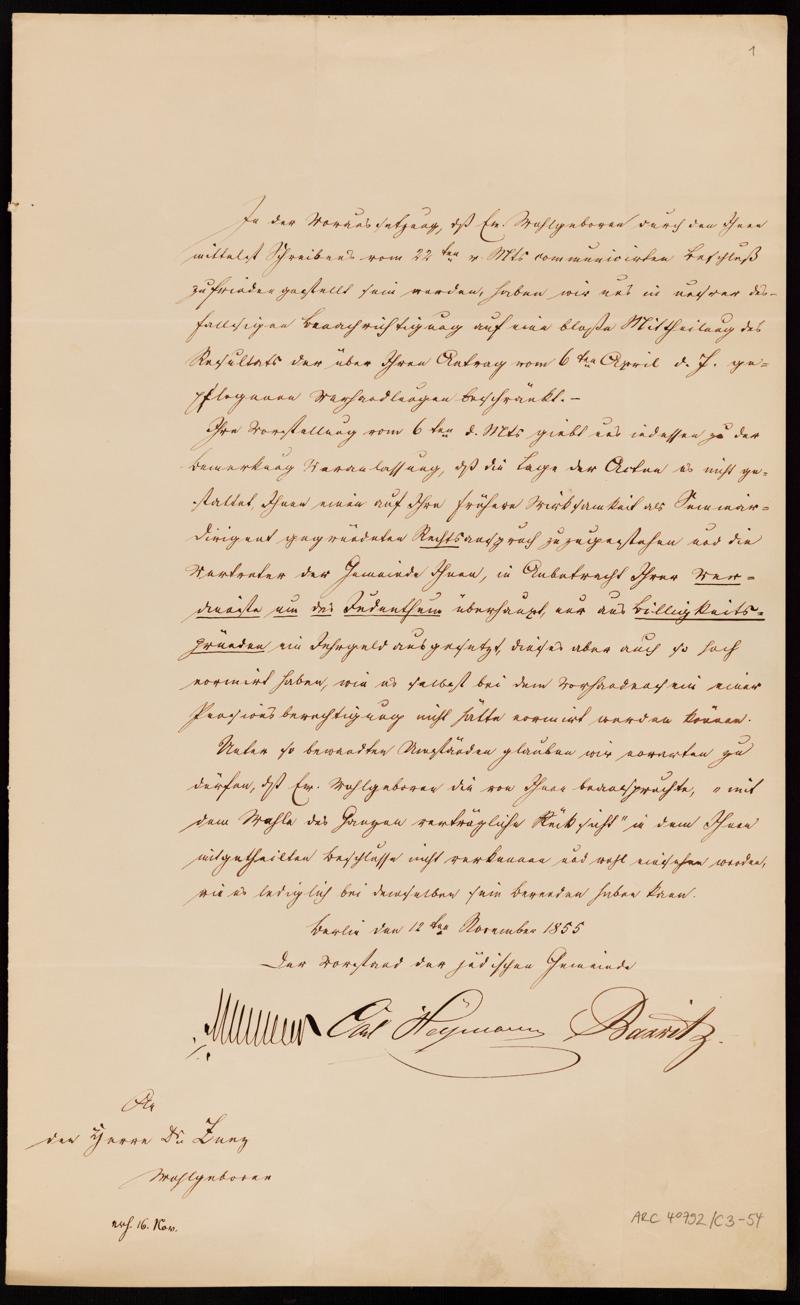 1
In der Voraussetzung, daß Ew. Wohlgeboren durch den Ihnen
mittelst Schreibens vom 22ten v. Mts communicirten Beschluß
zufrieden gestellt sein werden, haben wir uns in unsrer des-
fallsigen Benachrichtigung auf eine bloße Mittheilung des
Resultats der über Ihren Antrag vom 6ten April d. J. ge=
pflogenen Verhandlungen beschränkt.-
Ihre Vorstellung vom 6ten d. Mts giebt uns indessen zu der
Bemerkung Veranlassung, daß die Lage der Acten es nicht ge-
stattet, Ihnen einen auf Ihre frühere Wirksamkeit als Seminar-
Dirigent gegründeten Rechtsanspruch zuzugestehen und die
Vertreter der Gemeinde Ihnen, in Anbetracht Ihrer Ver-
dienste um das Judenthum überhaupt, nur aus Billigkeits-
gründen ein Jahrgeld ausgesetzt, dieses aber auch so hoch
normirt haben, wie es selbst bei dem Vorhandensein einer
Pensionsberechtigung nicht hätte normirt werden können.
Unter so bewandten Umständen glauben wir erwarten zu
dürfen, daß Ew. Wohlgeboren die von Ihnen beanspruchte, "mit
dem Wohle des Ganzen verträgliche Rücksicht" in dem Ihnen
mitgetheilten Beschlusse nicht verkennen und wohl einsehen werden,
wie es lediglich bei demselben sein Bewenden haben kann.
Berlin den 12ten November 1855
Der Vorstand der jüdischen Gemeinde
Carl Heymann
An
den Herrn Dr. Zunz
Wohlgeboren
erh. 16. Nov.
ARC 40792/C3-54